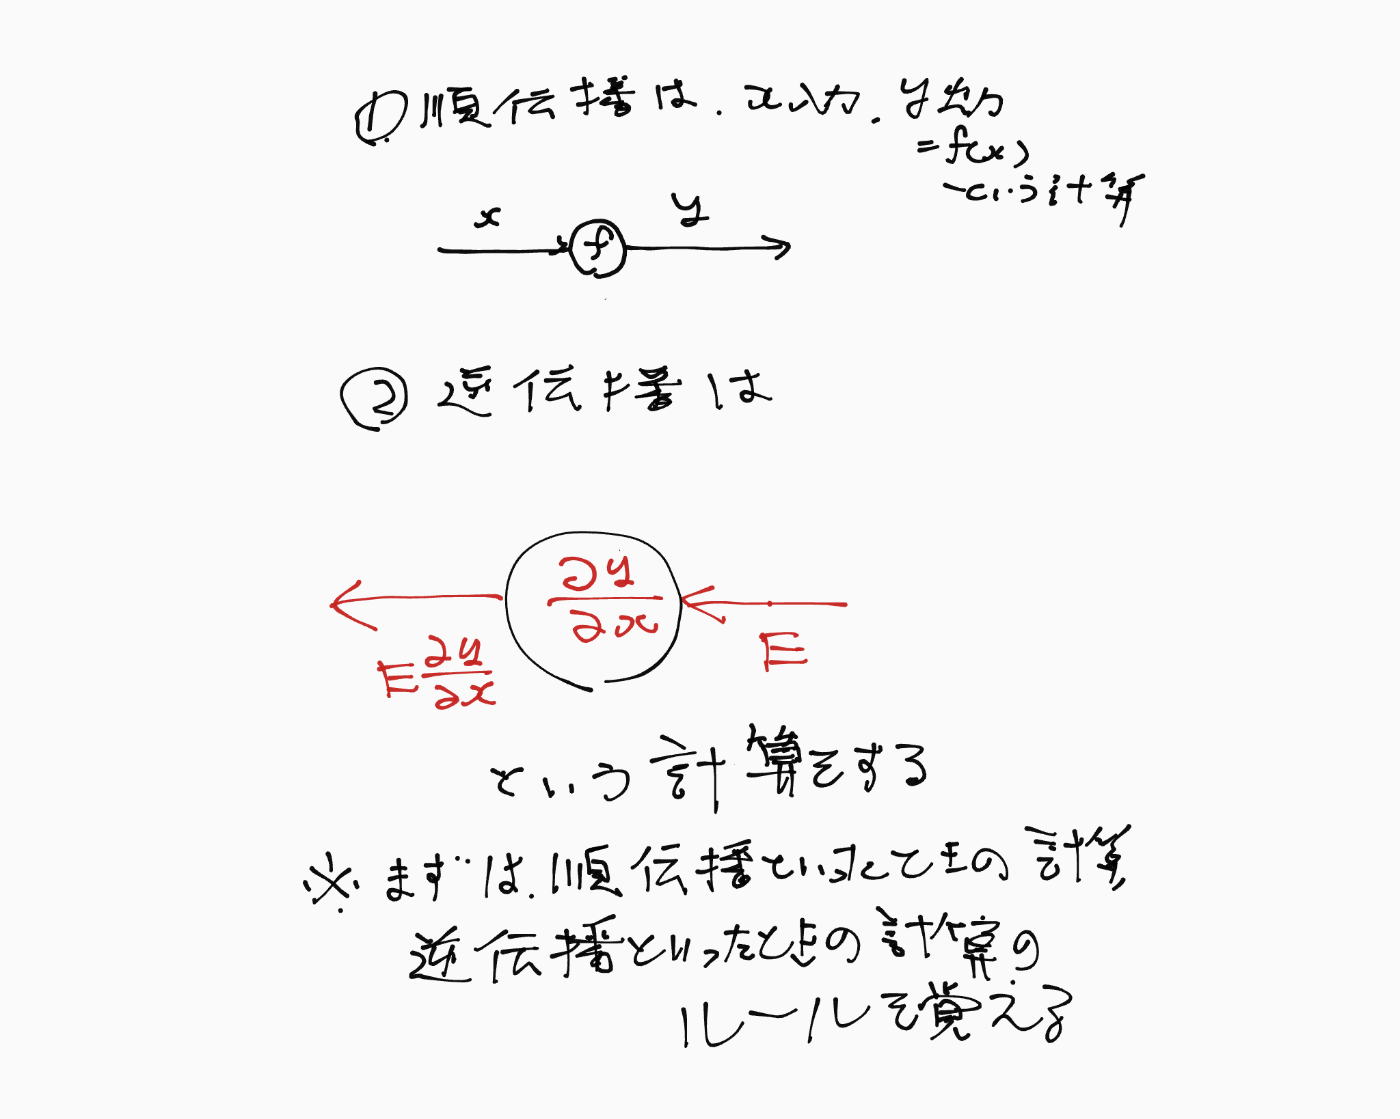 ① 順伝播は、x入力、y出力
=f(x)
という計算
x
y
f
② 逆伝播は
∂y/∂x
E
E ∂y/∂x
という計算をする
※ まずは、順伝播といったときの計算
逆伝播といったときの計算の
ルールを覚える